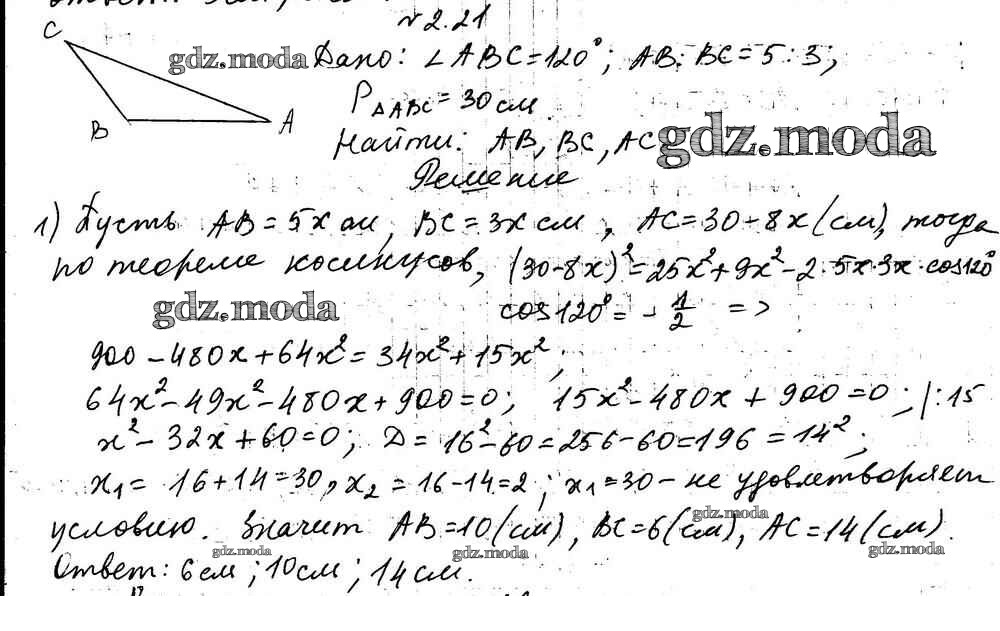 № 2.21
C
gdz.moda Дано: ∠ABC=120°; AB:BC=5:3;
P△ABC=30см.
B A
Найти: AB, BC, AC gdz.moda
Решение
1) Пусть AB=5x см, BC=3x см, AC=30-8x(см), тогда
по теореме косинусов, (30-8x)²=25x²+9x²-2·5x·3x·cos120°
gdz.moda cos120°= -1/2 =>
900-480x+64x²=34x²+15x²;
64x²-49x²-480x+900=0; 15x²-480x+900=0; |:15
x²-32x+60=0; D=16²-60=256-60=196=14²;
x₁= 16+14=30, x₂=16-14=2; x₁=30-не удовлетворяет
gdz.moda
условию. Значит AB=10(см), BC=6(см), AC=14(см).
gdz.moda gdz.moda gdz.moda
Ответ: 6см; 10см; 14см.